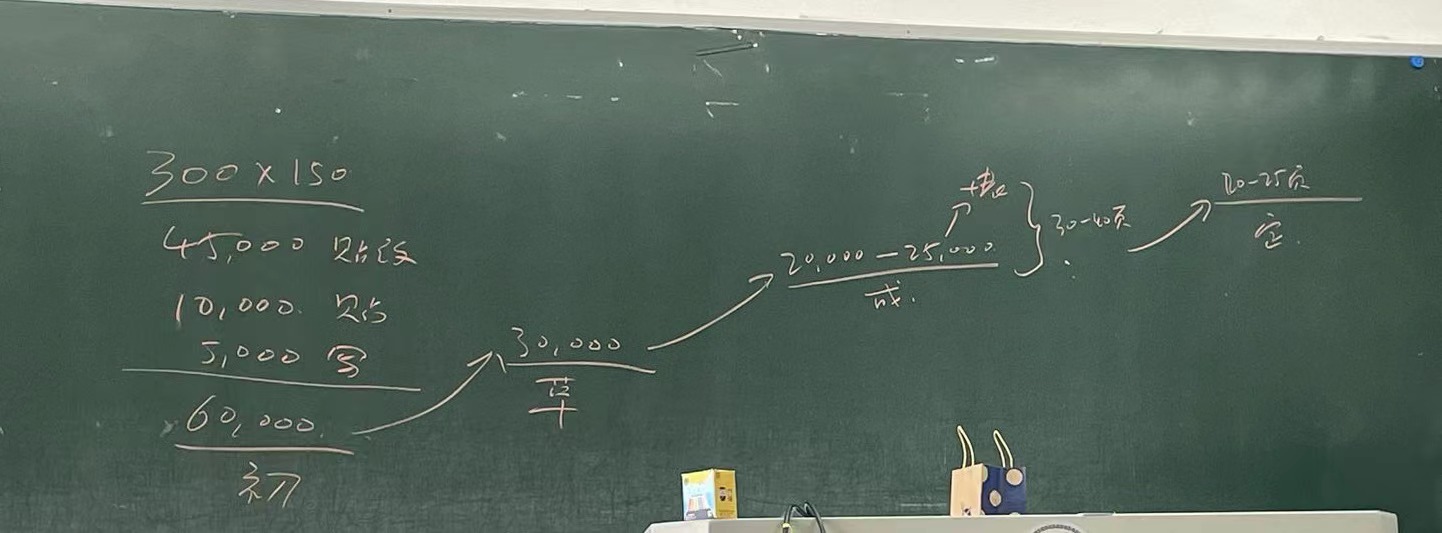 300×150
45,000 贴改
10,000. 贴
5,000 写
60,000.
初
30,000
草
20,000-25,000.
成.
30-40页
20-25页
定.